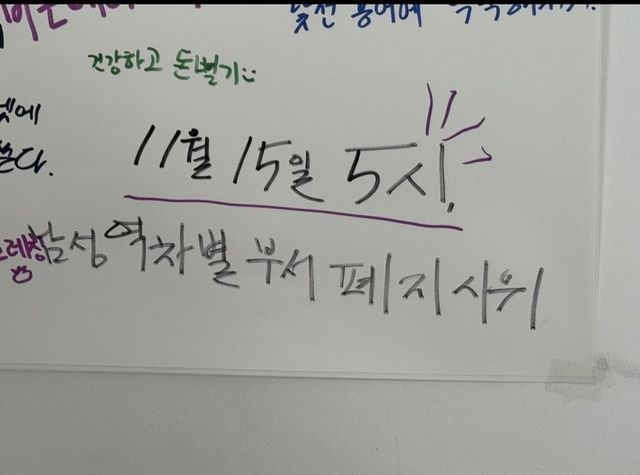 낯선 용어에
건강하고 돈벌기
쓴다.
11월 15일 5시!
남성 역차별 부서 폐지 시위